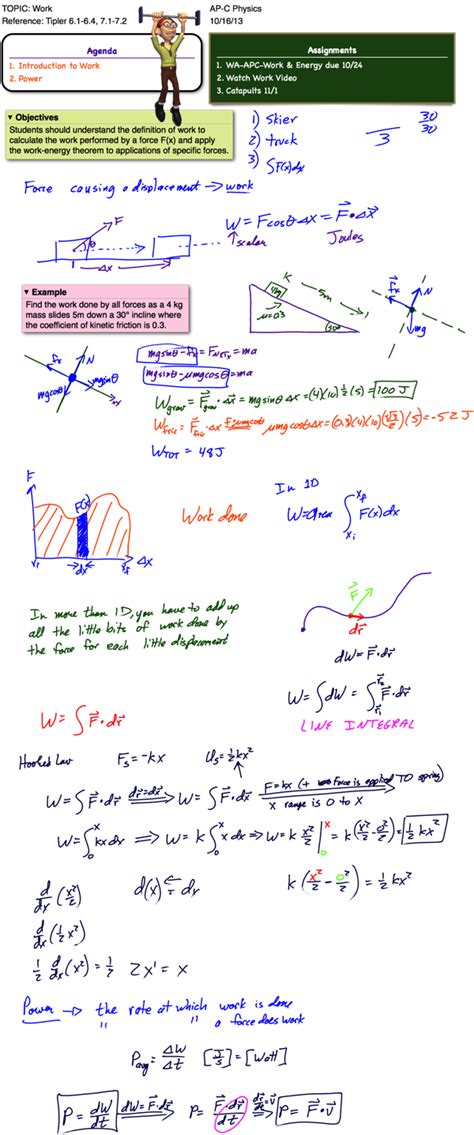 TOPIC: Work
AP-C Physics
Reference: Tipler 6.1-6.4, 7.1-7.2
10/16/13
Agenda
1. Introduction to Work
2. Power
Assignments
1. WA-APC-Work & Energy due 10/24
2. Watch Work Video
3. Catapults 11/1
▼ Objectives
Students should understand the definition of work to
calculate the work performed by a force F(x) and apply
the work-energy theorem to applications of specific forces.
1) skier
2) truck
3) ∫F(x)dx
3
30
30
Force causing a displacement → work
W = Fcosθ Δx = F⃗•Δx⃗
scalar
Joules
F
θ
Δx
▼ Example
Find the work done by all forces as a 4 kg
mass slides 5m down a 30° incline where
the coefficient of kinetic friction is 0.3.
4kg
5m
μ=0.3
30°
fκ
N
mg
fκ
N
mgcosθ
mgsinθ
+x
mgsinθ - fκ = FNETx = ma
mgsinθ - μmgcosθ = ma
Wgrav = F⃗grav • Δx⃗ = mgsinθ Δx = (4)(10)½(5) = 100 J
Wfric = F⃗fric • Δx F=μmgcosθ μmgcosθΔx = (0.3)(4)(10)(√3/2)(5) = -52 J
WTOT = 48 J
F
F(x)
xi
dx
xf
Δx
Work done
In 1D
W = area ∫xi^xf F(x)dx
In more than 1D, you have to add up
all the little bits of work done by
the force for each little displacement
F⃗
dr⃗
dW = F⃗•dr⃗
W = ∫dW = ∫ F⃗•dr⃗
LINE INTEGRAL
W = ∫ F⃗•dr⃗
Hooke's Law Fs = -kx Us = ½kx²
W = ∫F⃗•dr⃗ ⟹ W = ∫F⃗•dx⃗ F=kx (+ force is applied TO spring)
x range is 0 to x
W = ∫0^x kxdx ⟹ W = k∫0^x xdx ⟹ W = k x²/2 |0^x = k(x²/2 - 0²/2) = ½kx²
d/dx (x²/2)
d(x) ← dx
k(x²/2 - 0²/2) = ½kx²
d/dx (½x²)
½ d/dx (x²) = ½ 2x¹ = x
Power → the rate at which work is done
" " a force does work
Pavg = ΔW/Δt [J/s] = [Watt]
P = dW/dt dW=F⃗•dr⃗ P = F⃗•dr⃗/dt dr⃗/dt=v⃗ P = F⃗•v⃗